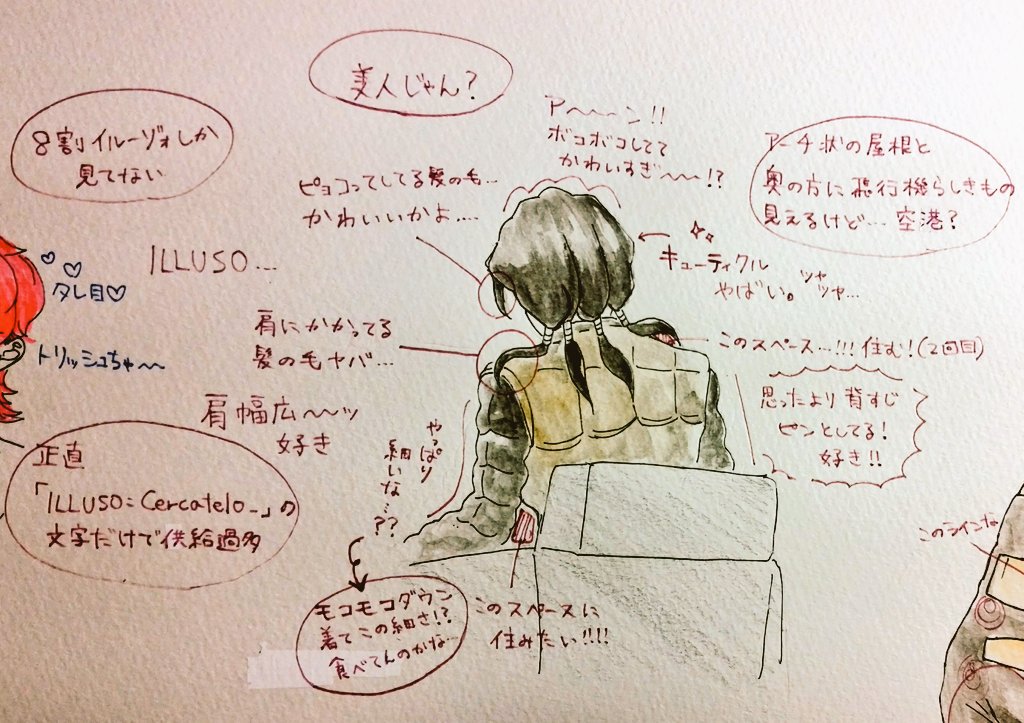 美人じゃん?
8割イルーゾォしか
見てない
ア〜〜ン!!
ボコボコしてて
かわいすぎ〜〜!?
アーチ状の屋根と
奥の方に飛行機らしきもの
見えるけど… 空港?
ピョコってしてる髪の毛…
かわいいかよ….
ILLUSO…
タレ目♡
トリッシュちゃ〜〜
キューティクル
やばい。
ツヤ
ツヤ…
肩にかかってる
髪の毛ヤバ…
このスペース…!!! 住む!(2回目)
思ったより背すじ
ピンとしてる!
好き!!
肩幅広〜〜ッ
好き
やっぱり
細いな…??
正直
「ILLUSO: Cercatelo_」の
文字だけで供給過多
このラインな
モコモコダウン
着てこの細さ!?
食べてんのかな…
このスペースに
住みたい!!!!